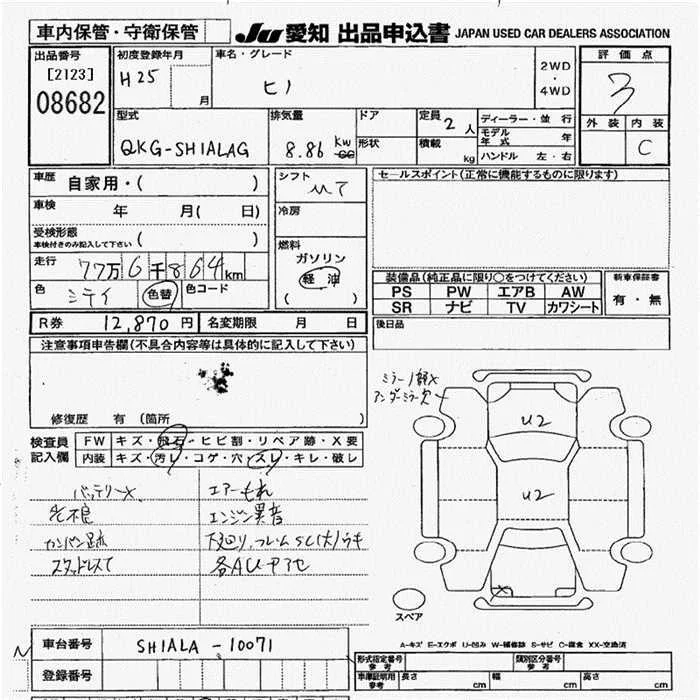 車内保管・守衛保管
JU愛知 出品申込書 JAPAN USED CAR DEALERS ASSOCIATION
出品番号 [2123] 08682
初度登録年月 H25 月
車名・グレード ヒノ
2WD・4WD
評価点 3
外装 内装 C
型式 QKG-SH1ALAG
排気量 8.86 KW cc
ドア 形状
定員 2人
積載 kg
ディーラー・並行
モデル年式 年
ハンドル 左・右
車歴 自家用・( )
シフト MT
セールスポイント(正常に機能するものに限ります)
車検 年 月( 日)
冷房
受検形態 車検付きのみ記入して下さい ( )
燃料 ガソリン 軽油 ( )
走行 77万6千864km
色 シテイ 色替 色コード
装備品(純正品に限り○をつけてください)
PS PW エアB AW
SR ナビ TV カワシート
新車保証書 有・無
R券 12,870円 名変期限 月 日
後日品
注意事項申告欄(不具合内容等は具体的に記入して下さい)
修復歴 有 (箇所 )
検査員記入欄
FW キズ・飛石・ヒビ割・リペア跡・X要
内装 キズ・汚レ・コゲ・穴・スレ・キレ・破レ
バッテリーX エアーもれ
光不良 エンジン異音
カンバン跡 下廻り、フレームSC(大)ウキ
スタッドレスT
ミラー1部X
アンダーミラー欠
U2
U2
X
スペア
A-キズ E-エクボ U-凹み W-補修跡 S-サビ C-腐食 XX-交換済
車台番号 SH1ALA-10071
登録番号
形式指定番号 参考
類別区分番号 参考
車庫証明用 参考 長さ cm 幅 cm 高さ cm